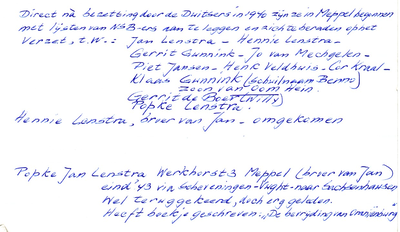 Direct na bezetting door de Duitsers in 1940 zijn ze in Meppel begonnen
met lijsten van NSB-ers aan te leggen en zich te beraden op het
Verzet, t.W.: Jan Lenstra - Hennie Lenstra -
Gerrit Gunnink - Jo van Mechgelen -
Piet Jansen - Henk Veldhuis - Cor Kraal -
Klaas Gunnink (schuilnaam Benno)
zoon van Oom Hein.
Gerrit de Boer (Willy)
Popke Lenstra.
Hennie Lenstra, broer van Jan - omgekomen
Popke Jan Lenstra Werkhorst 3 Meppel (broer van Jan)
eind '43 via Scheveningen - Vught - naar Sachsenhausen
Wel teruggekeerd, doch erg geleden.
Heeft boekje geschreven: "De bevrijding van Oranienburg"